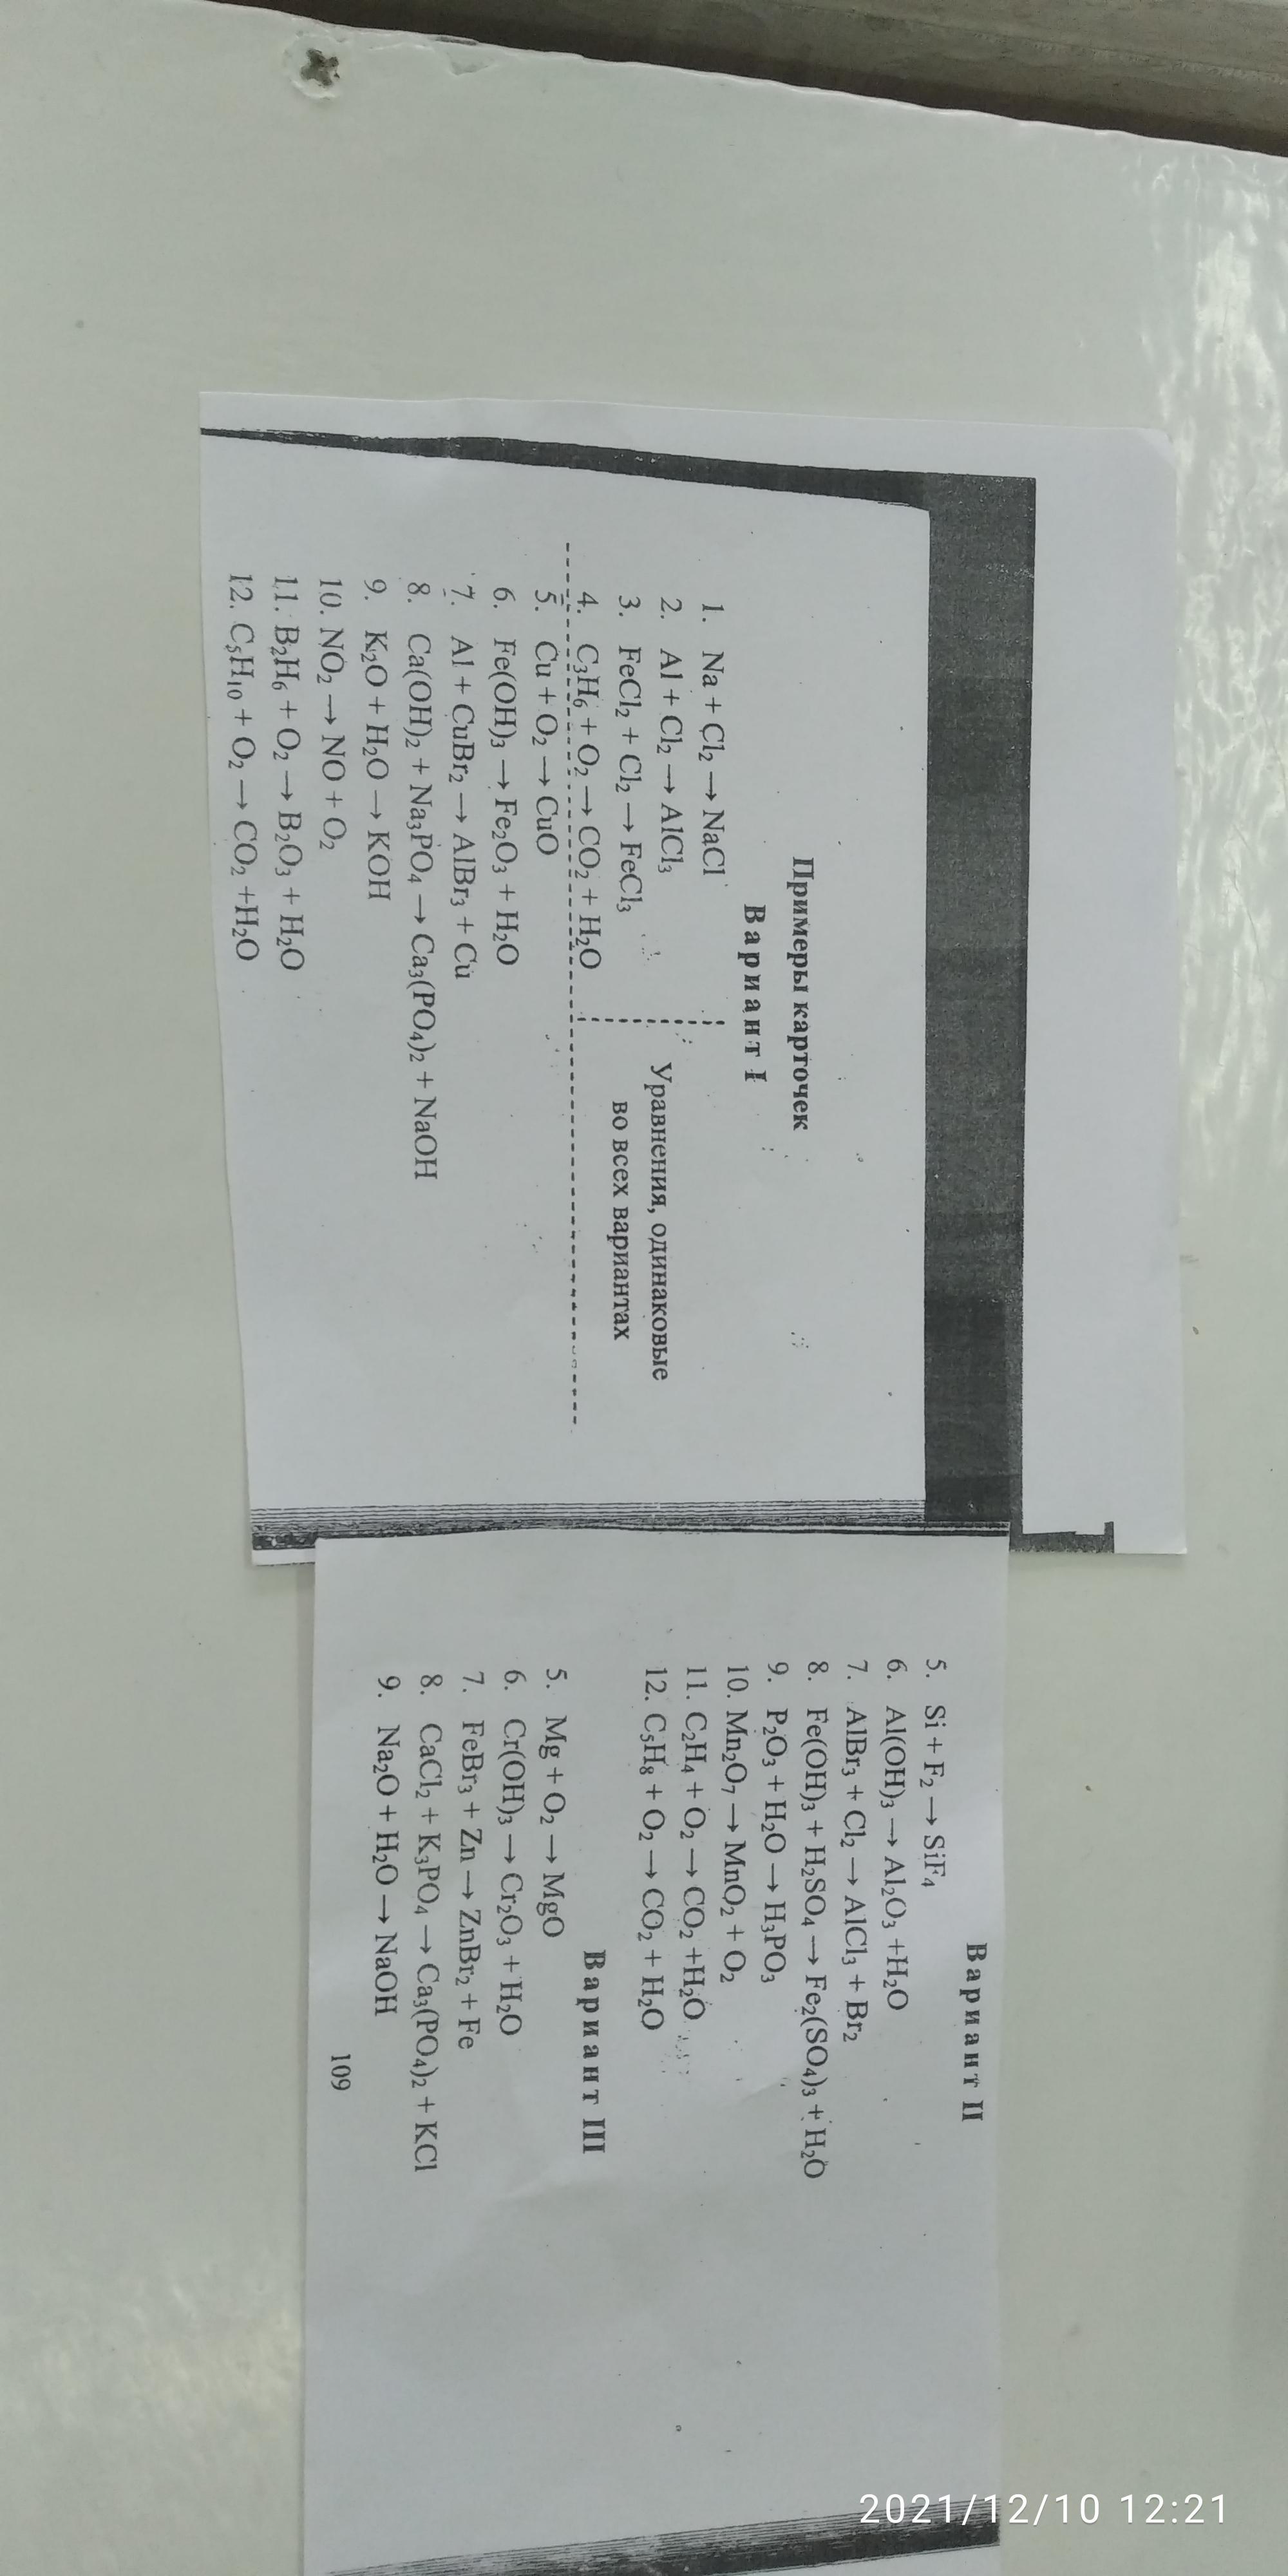 Примеры карточек
Вариант I
1. Na + Cl₂ → NaCl
2. Al + Cl₂ → AlCl₃
3. FeCl₂ + Cl₂ → FeCl₃
4. C₃H₆ + O₂ → CO₂ + H₂O
Уравнения, одинаковые
во всех вариантах
5. Cu + O₂ → CuO
6. Fe(OH)₃ → Fe₂O₃ + H₂O
7. Al + CuBr₂ → AlBr₃ + Cu
8. Ca(OH)₂ + Na₃PO₄ → Ca₃(PO₄)₂ + NaOH
9. K₂O + H₂O → KOH
10. NO₂ → NO + O₂
11. B₂H₆ + O₂ → B₂O₃ + H₂O
12. C₅H₁₀ + O₂ → CO₂ +H₂O
Вариант II
5. Si + F₂ → SiF₄
6. Al(OH)₃ → Al₂O₃ +H₂O
7. AlBr₃ + Cl₂ → AlCl₃ + Br₂
8. Fe(OH)₃ + H₂SO₄ → Fe₂(SO₄)₃ + H₂O
9. P₂O₃ + H₂O → H₃PO₃
10. Mn₂O₇ → MnO₂ + O₂
11. C₂H₄ + O₂ → CO₂ +H₂O
12. C₅H₈ + O₂ → CO₂ + H₂O
Вариант III
5. Mg + O₂ → MgO
6. Cr(OH)₃ → Cr₂O₃ + H₂O
7. FeBr₃ + Zn → ZnBr₂ + Fe
8. CaCl₂ + K₃PO₄ → Ca₃(PO₄)₂ + KCl
9. Na₂O + H₂O → NaOH
109
2021/12/10 12:21